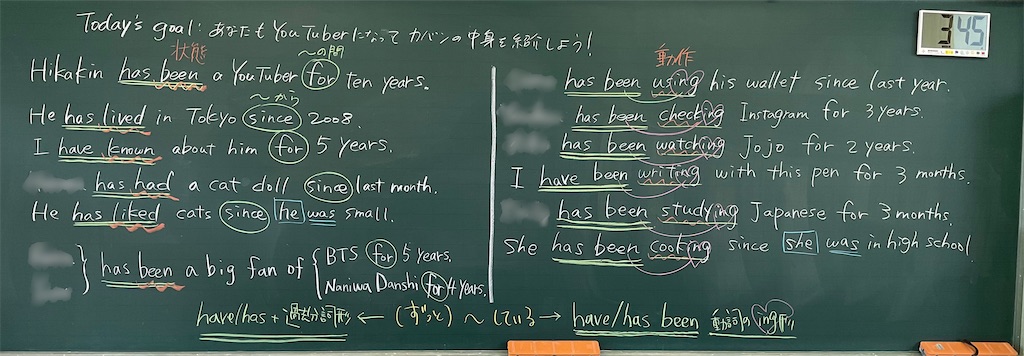 Today's goal: あなたも YouTuberになって カバンの中身を紹介しよう!
345
状態 〜の間
Hikakin has been a YouTuber for ten years.
〜から
He has lived in Tokyo since 2008.
I have known about him for 5 years.
has had a cat doll since last month.
He has liked cats since he was small.
has been a big fan of { BTS for 5 years.
Naniwa Danshi for 4 years.
動作
has been using his wallet since last year.
has been checking Instagram for 3 years.
has been watching JoJo for 2 years.
I have been writing with this pen for 3 months.
has been studying Japanese for 3 months.
She has been cooking since she was in high school
have/has + 過去分詞形 ← (ずっと) 〜している → have/has been 動詞のing形